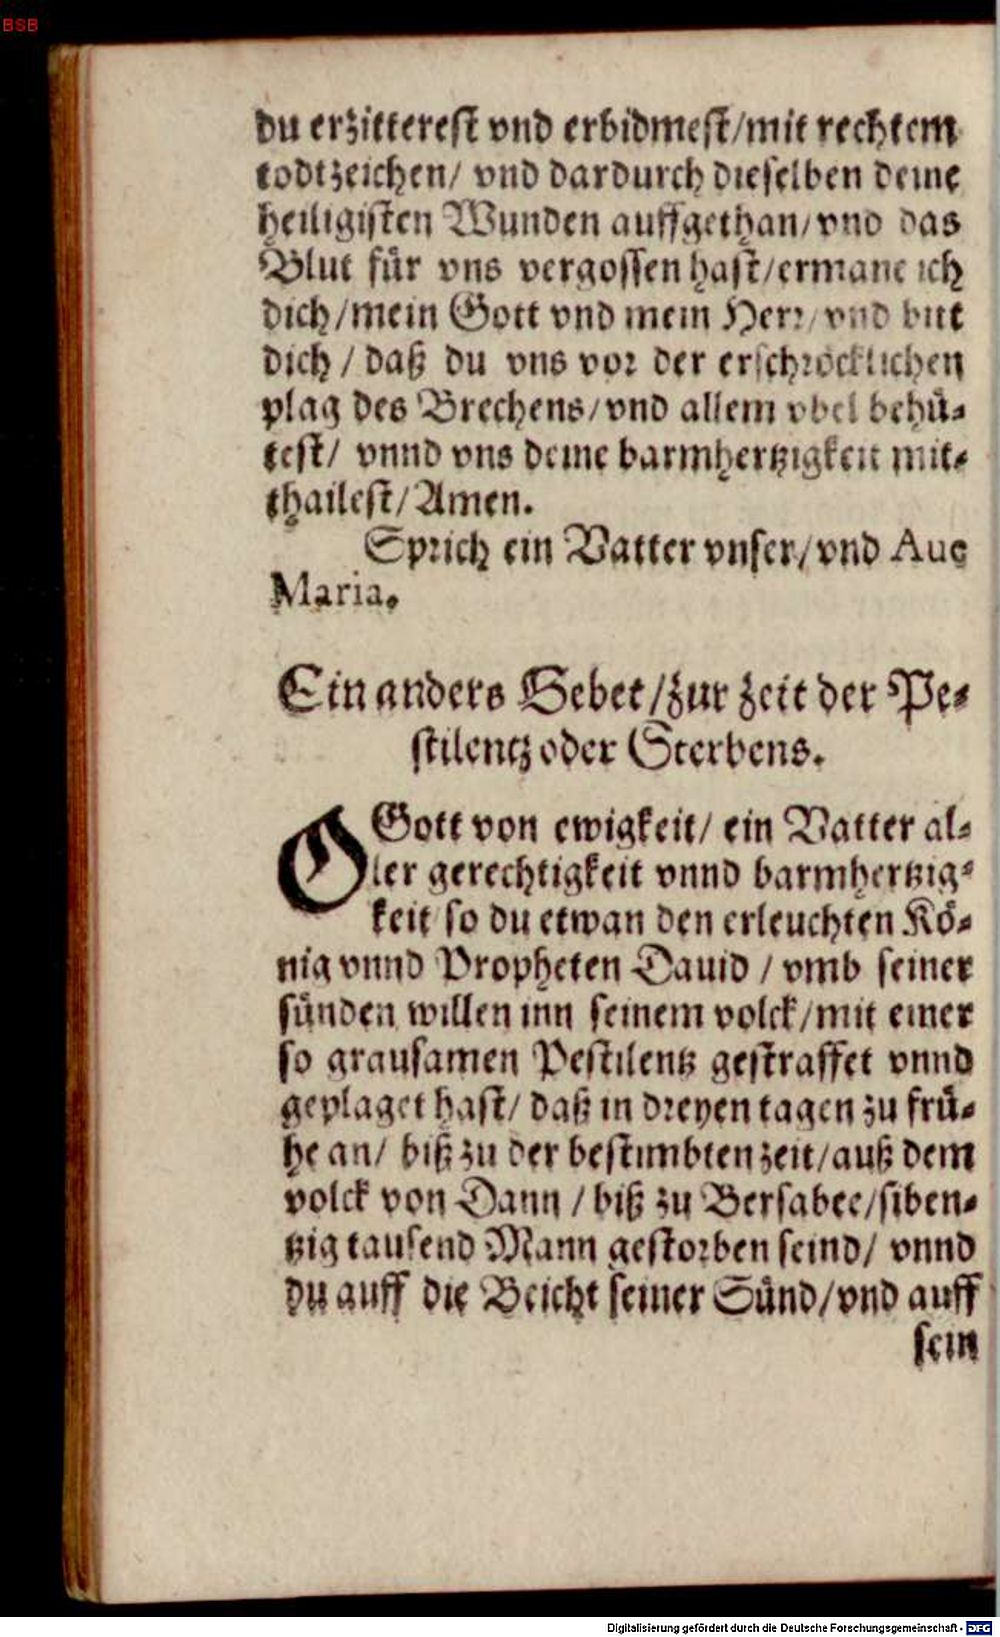 BSB
du erzitterest vnd erbidmest/mit rechtem
todtzeichen/ vnd dardurch dieselben deine
heiligisten Wunden auffgethan/vnd das
Blut für vns vergossen hast/ermane ich
dich/mein Gott vnd mein Herr/vnd bitt
dich / daß du vns vor der erschröcklichen
plag des Brechens/vnd allem vbel behü-
test/ vnnd vns deine barmhertzigkeit mit-
thailest/Amen.
Sprich ein Vatter vnser/vnd Aue
Maria.
Ein anders Gebet/zur zeit der Pe-
stilentz oder Sterbens.
O Gott von ewigkeit/ ein Vatter al-
ler gerechtigkeit vnnd barmhertzig-
keit so du etwan den erleuchten Kö-
nig vnnd Propheten Dauid / vmb seiner
sünden willen inn seinem volck/mit einer
so grausamen Pestilentz gestraffet vnnd
geplaget hast/ daß in dreyen tagen zu frü-
he an/ biß zu der bestimbten zeit/auß dem
volck von Dann / biß zu Bersabee/siben-
tzig tausend Mann gestorben seind/ vnnd
du auff die Beicht seiner Sünd/vnd auff
sein
Digitalisierung gefördert durch die Deutsche Forschungsgemeinschaft - DFG